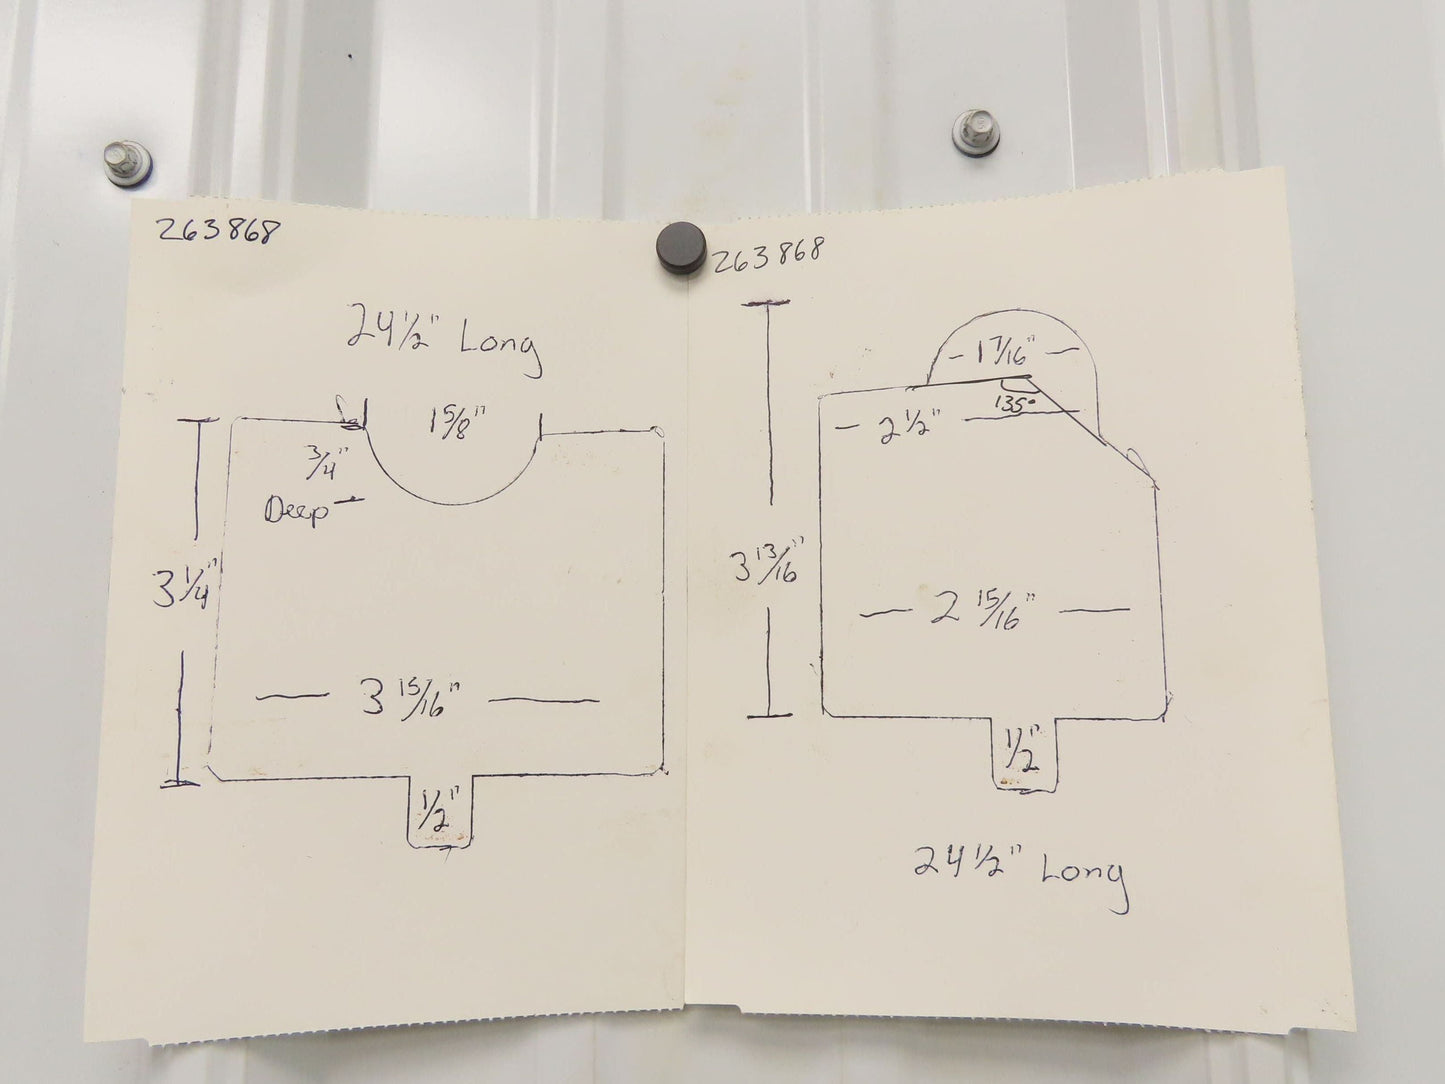 263868
24 1/2" Long
1 5/8"
3/4"
Deep
3 1/4"
3 15/16"
1/2"
263868
1 7/16"
135°
2 1/2"
3 13/16"
2 15/16"
1/2"
24 1/2" Long